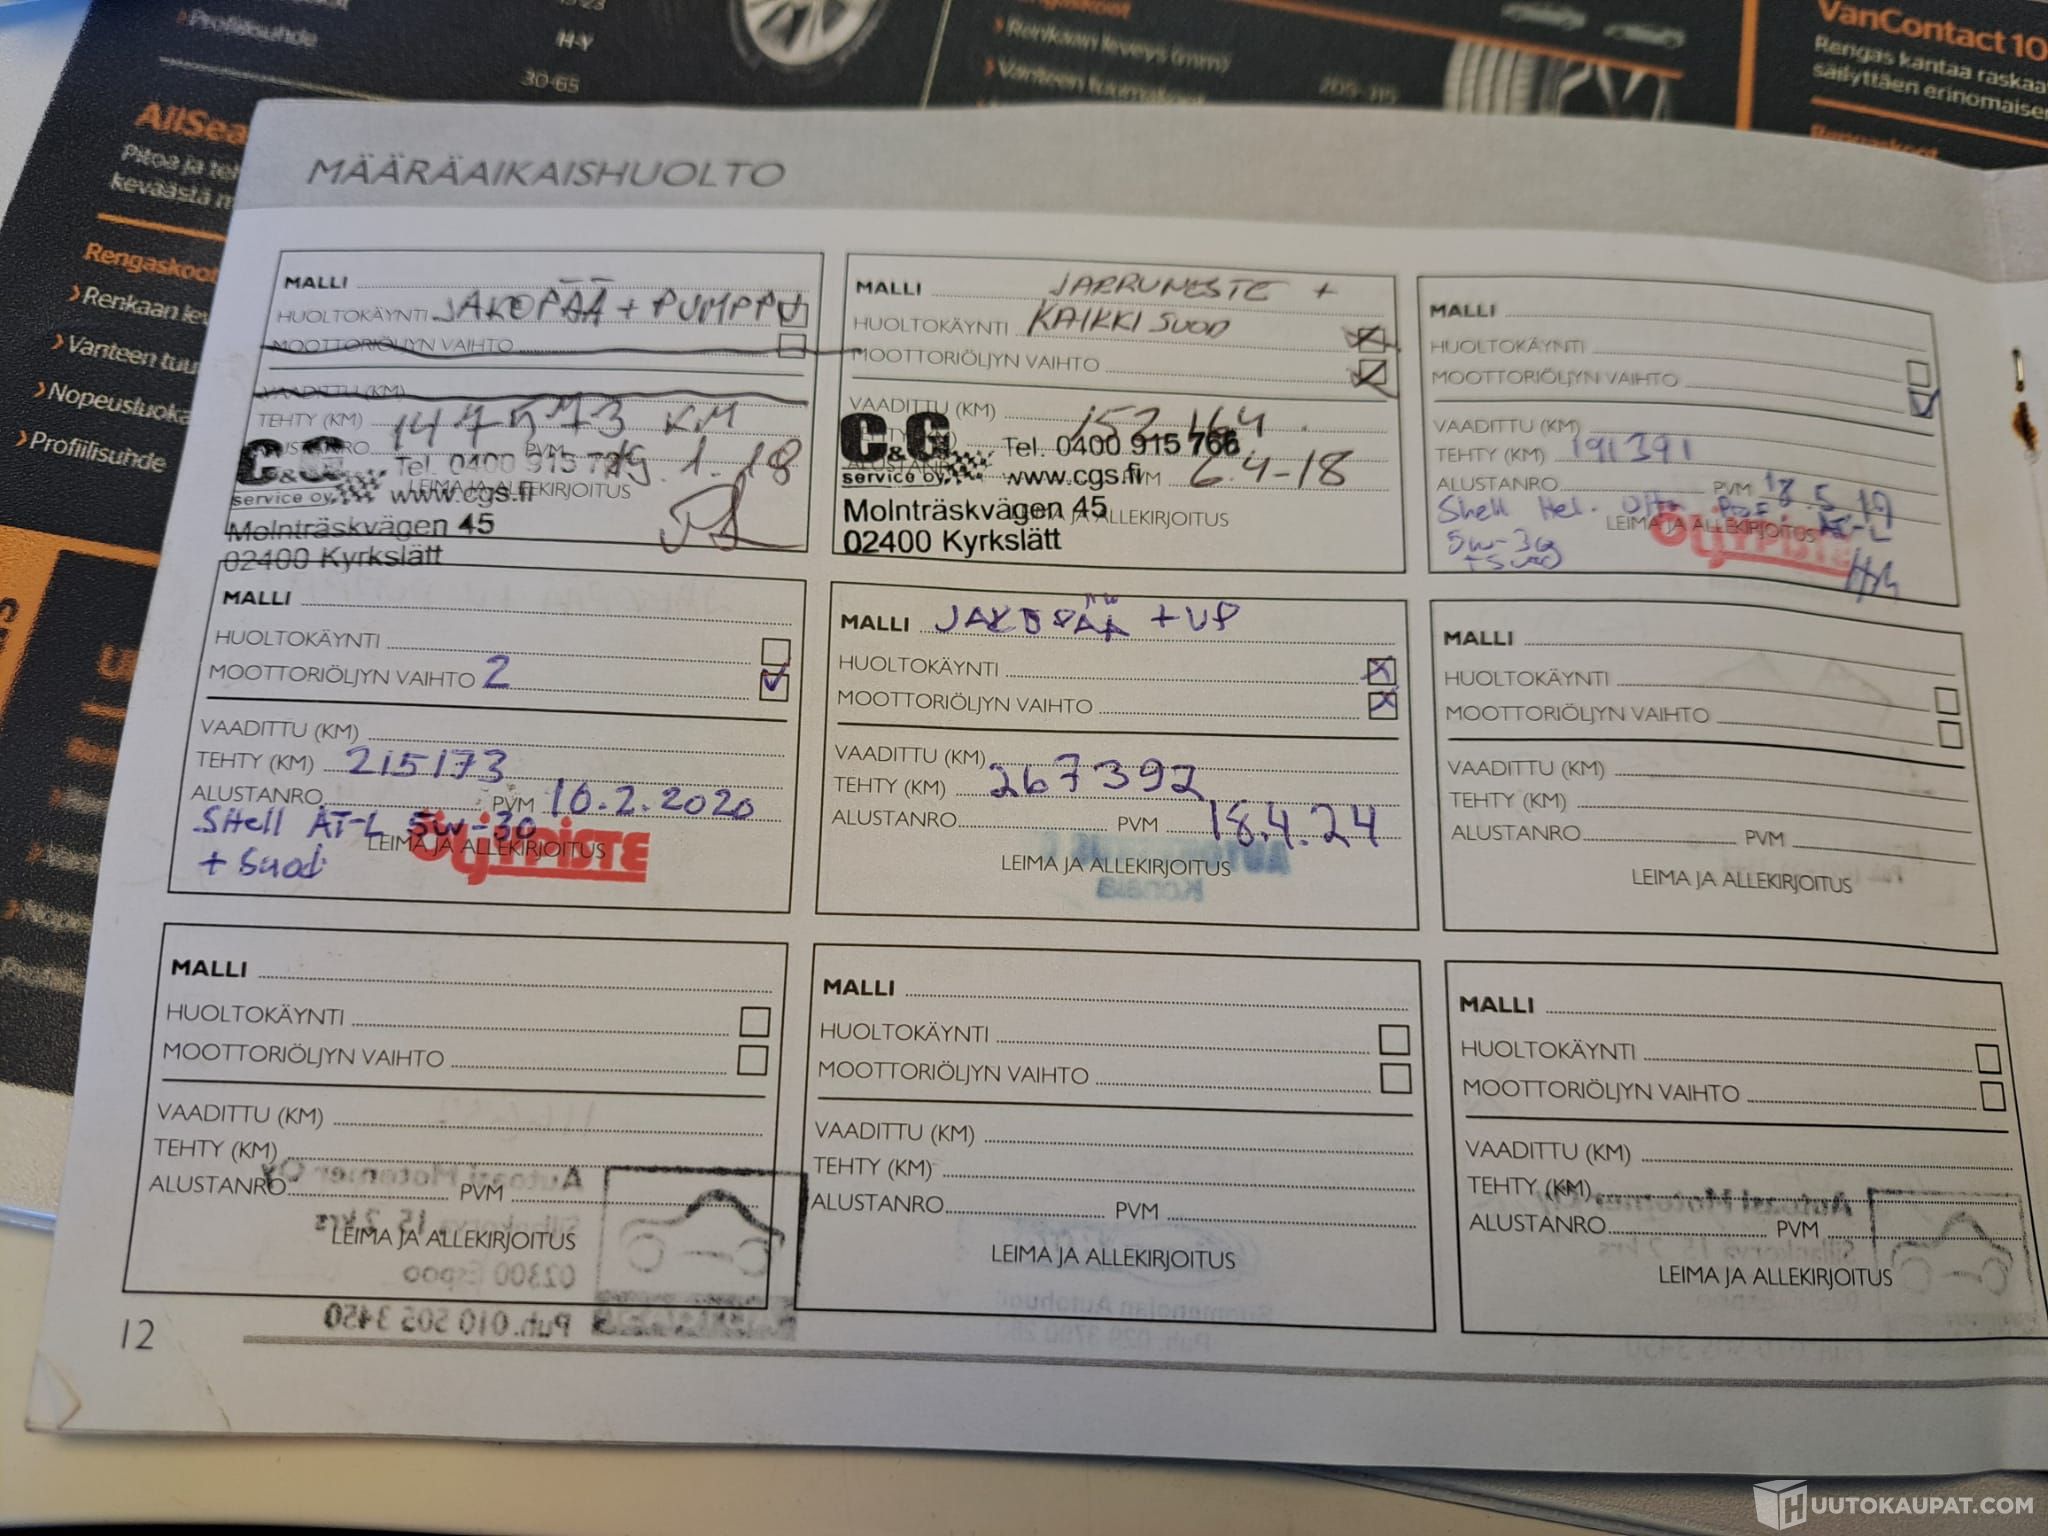 Profiilisuhde
H-Y
30-65
Rengaskoot
Renkaan leveys (mm)
Vanteen tuumakoot
205-315
VanContact 10
Rengas kantaa raskaa
säilyttäen erinomaisen
Rengaskoot
AllSea
Pitoa ja te
keväästä m
Rengaskoot
Renkaan lev
Vanteen tuu
Nopeusluoka
Profiilisuhde
MÄÄRÄAIKAISHUOLTO
MALLI
HUOLTOKÄYNTI JAKOPÄÄ + PUMPPU
MOOTTORIÖLJYN VAIHTO
VAADITTU (KM)
TEHTY (KM) 147573 KM
ALUSTANRO PVM 19.1.18
C&G service oy
Tel. 0400 915 766
www.cgs.fi
LEIMA JA ALLEKIRJOITUS
Molnträskvägen 45
02400 Kyrkslätt
MALLI JARRUNESTE +
HUOLTOKÄYNTI KAIKKI SUOD
MOOTTORIÖLJYN VAIHTO
VAADITTU (KM)
152164
C&G service oy
Tel. 0400 915 766
ALUSTANRO PVM 6.4-18
www.cgs.fi
Molnträskvägen 45
LEIMA JA ALLEKIRJOITUS
02400 Kyrkslätt
MALLI
HUOLTOKÄYNTI
MOOTTORIÖLJYN VAIHTO
VAADITTU (KM)
TEHTY (KM) 191391
ALUSTANRO PVM 18.5.19
Shell Hel. AT-L
LEIMA JA ALLEKIRJOITUS
Öljypiste
5w-30
+ Suod
MALLI
HUOLTOKÄYNTI
MOOTTORIÖLJYN VAIHTO 2
VAADITTU (KM)
TEHTY (KM) 215173
ALUSTANRO PVM 10.2.2020
Shell AT-L 5w-30
LEIMA JA ALLEKIRJOITUS
Öljypiste
+ Suod
MALLI JAKOPÄÄ + VP
HUOLTOKÄYNTI
MOOTTORIÖLJYN VAIHTO
VAADITTU (KM)
TEHTY (KM) 267392
ALUSTANRO PVM 18.4.24
LEIMA JA ALLEKIRJOITUS
Konala
MALLI
HUOLTOKÄYNTI
MOOTTORIÖLJYN VAIHTO
VAADITTU (KM)
TEHTY (KM)
ALUSTANRO PVM
LEIMA JA ALLEKIRJOITUS
MALLI
HUOLTOKÄYNTI
MOOTTORIÖLJYN VAIHTO
VAADITTU (KM)
TEHTY (KM)
Autoasi Motomer Oy
ALUSTANRO PVM
Sillankorva 15, 2 krs
LEIMA JA ALLEKIRJOITUS
02300 Espoo
Puh. 010 505 3450
MALLI
HUOLTOKÄYNTI
MOOTTORIÖLJYN VAIHTO
VAADITTU (KM)
TEHTY (KM)
ALUSTANRO PVM
LEIMA JA ALLEKIRJOITUS
MALLI
HUOLTOKÄYNTI
MOOTTORIÖLJYN VAIHTO
VAADITTU (KM)
TEHTY (KM)
Autoasi Motomer Oy
ALUSTANRO PVM
Sillankorva 15, 2 krs
LEIMA JA ALLEKIRJOITUS
12
HUUTOKAUPAT.COM